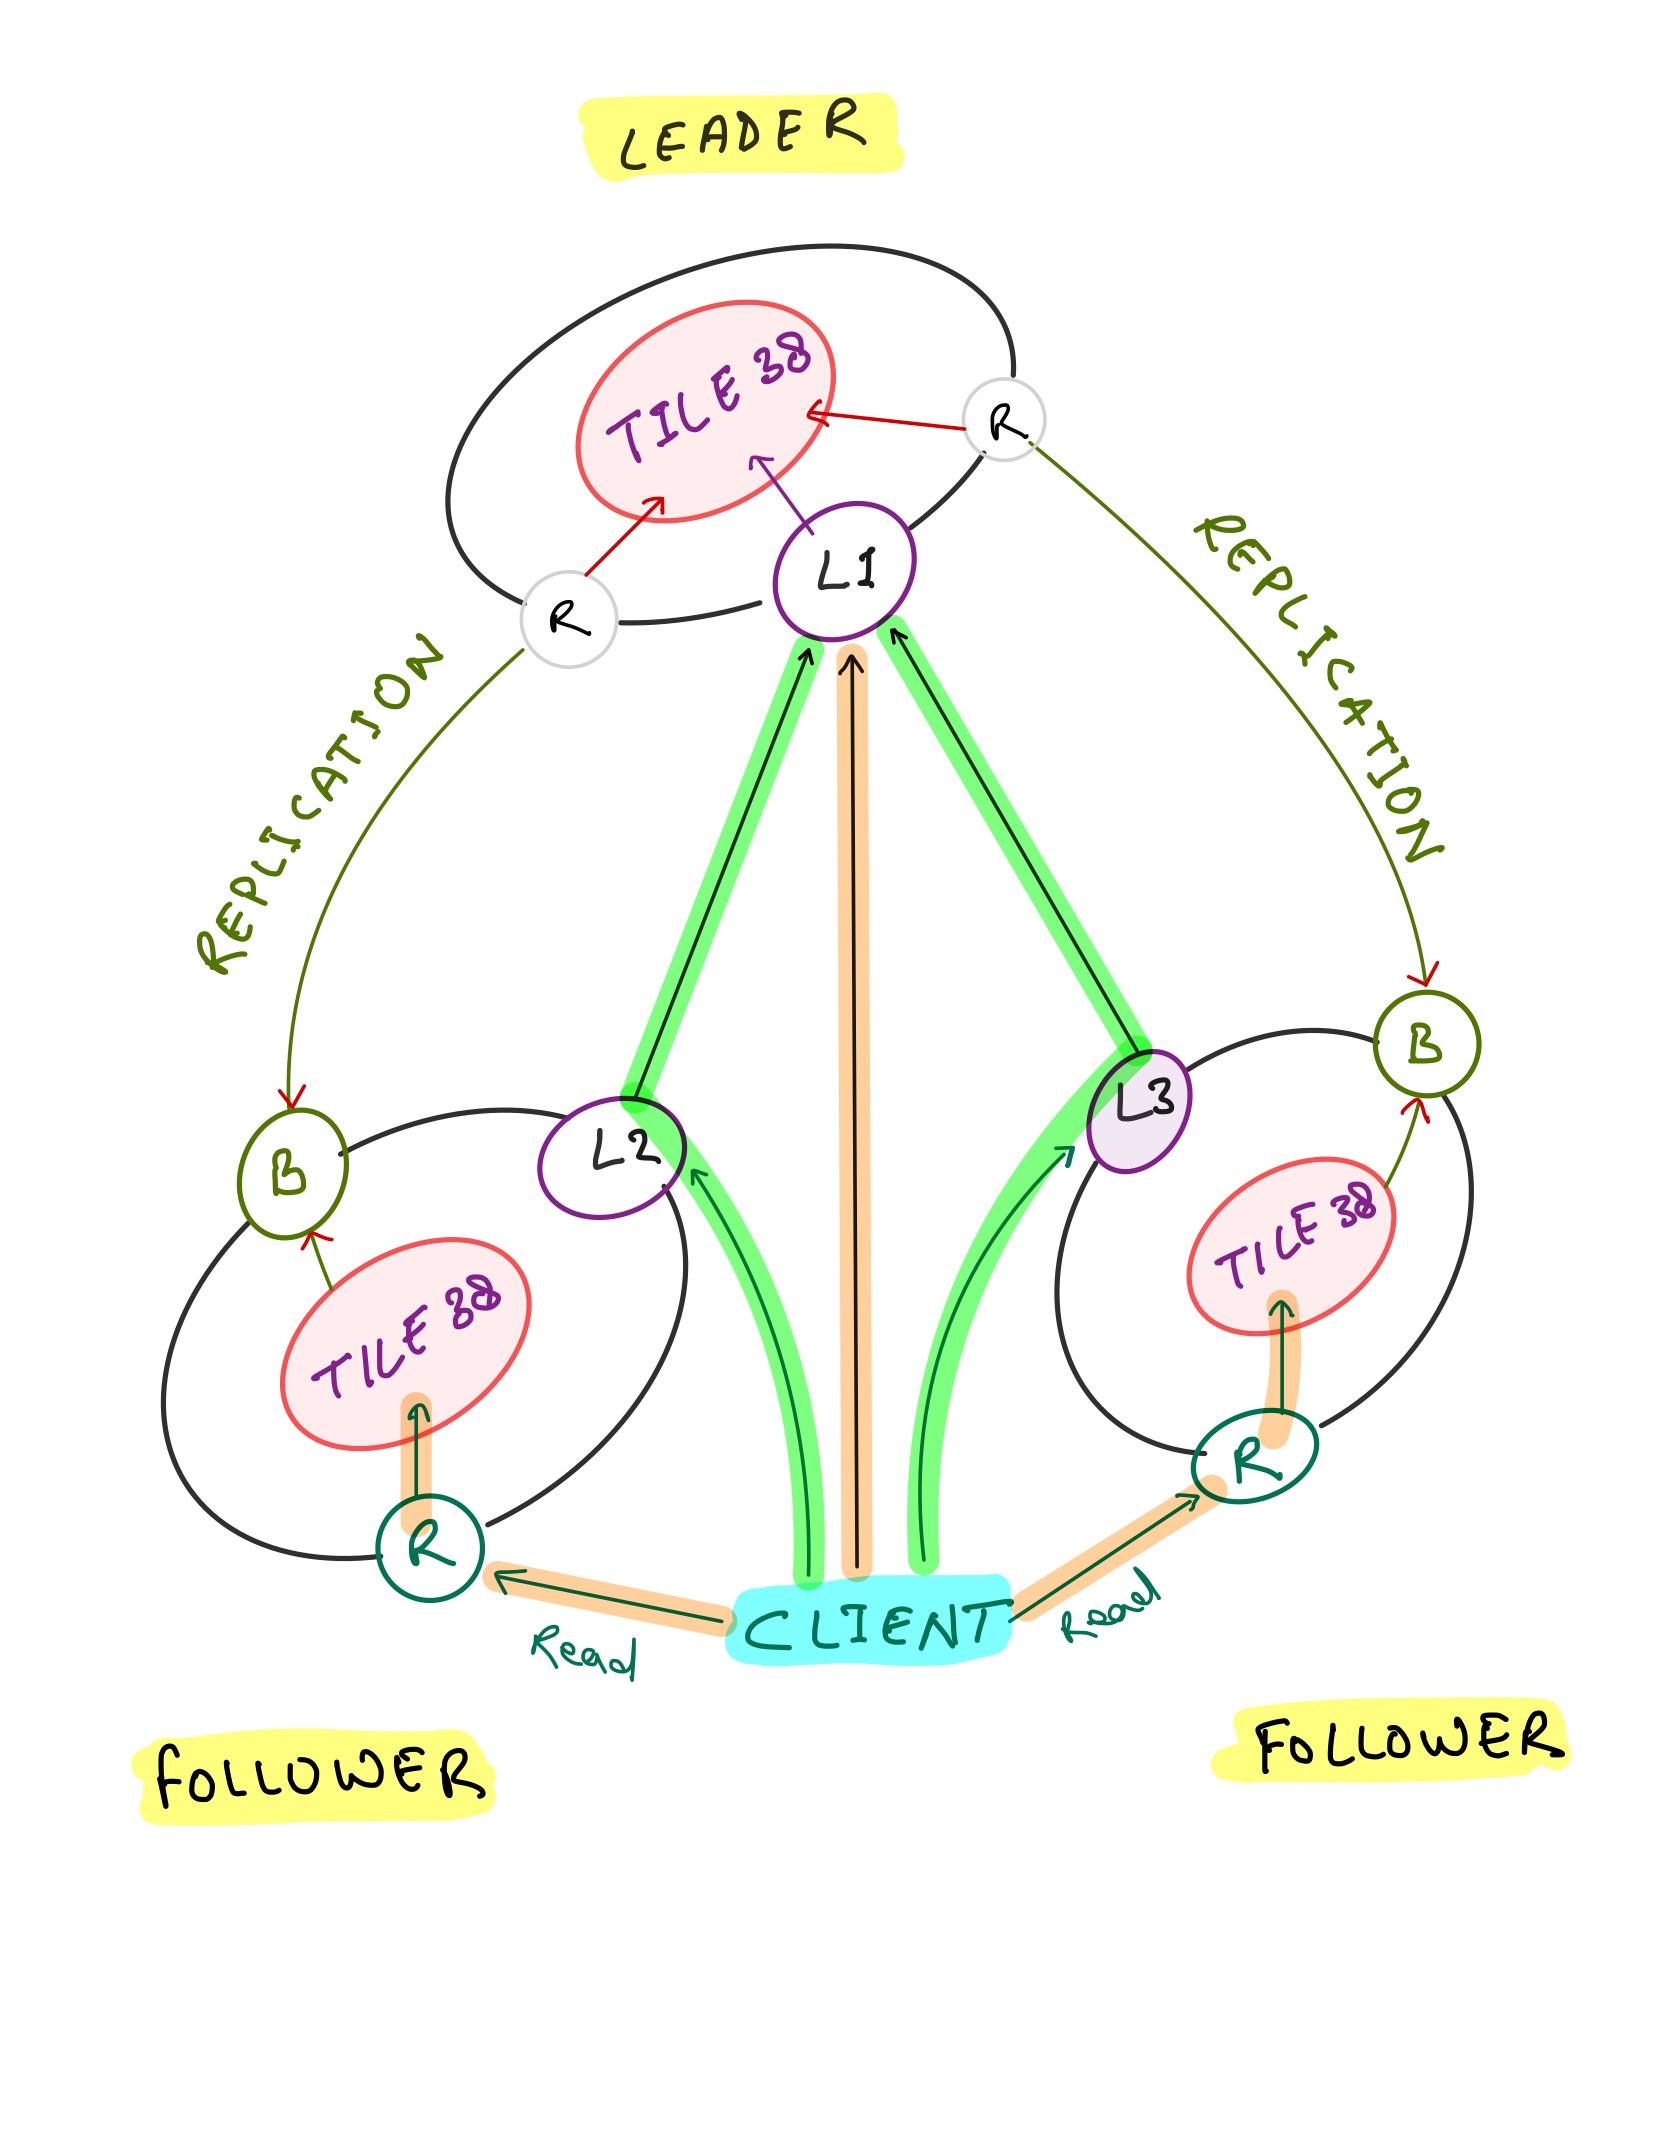 LEADER
TILE 38
R
L1
R
REPLICATION
REPLICATION
B
L2
L3
B
TILE 38
TILE 38
R
R
CLIENT
Read
Read
FOLLOWER
FOLLOWER